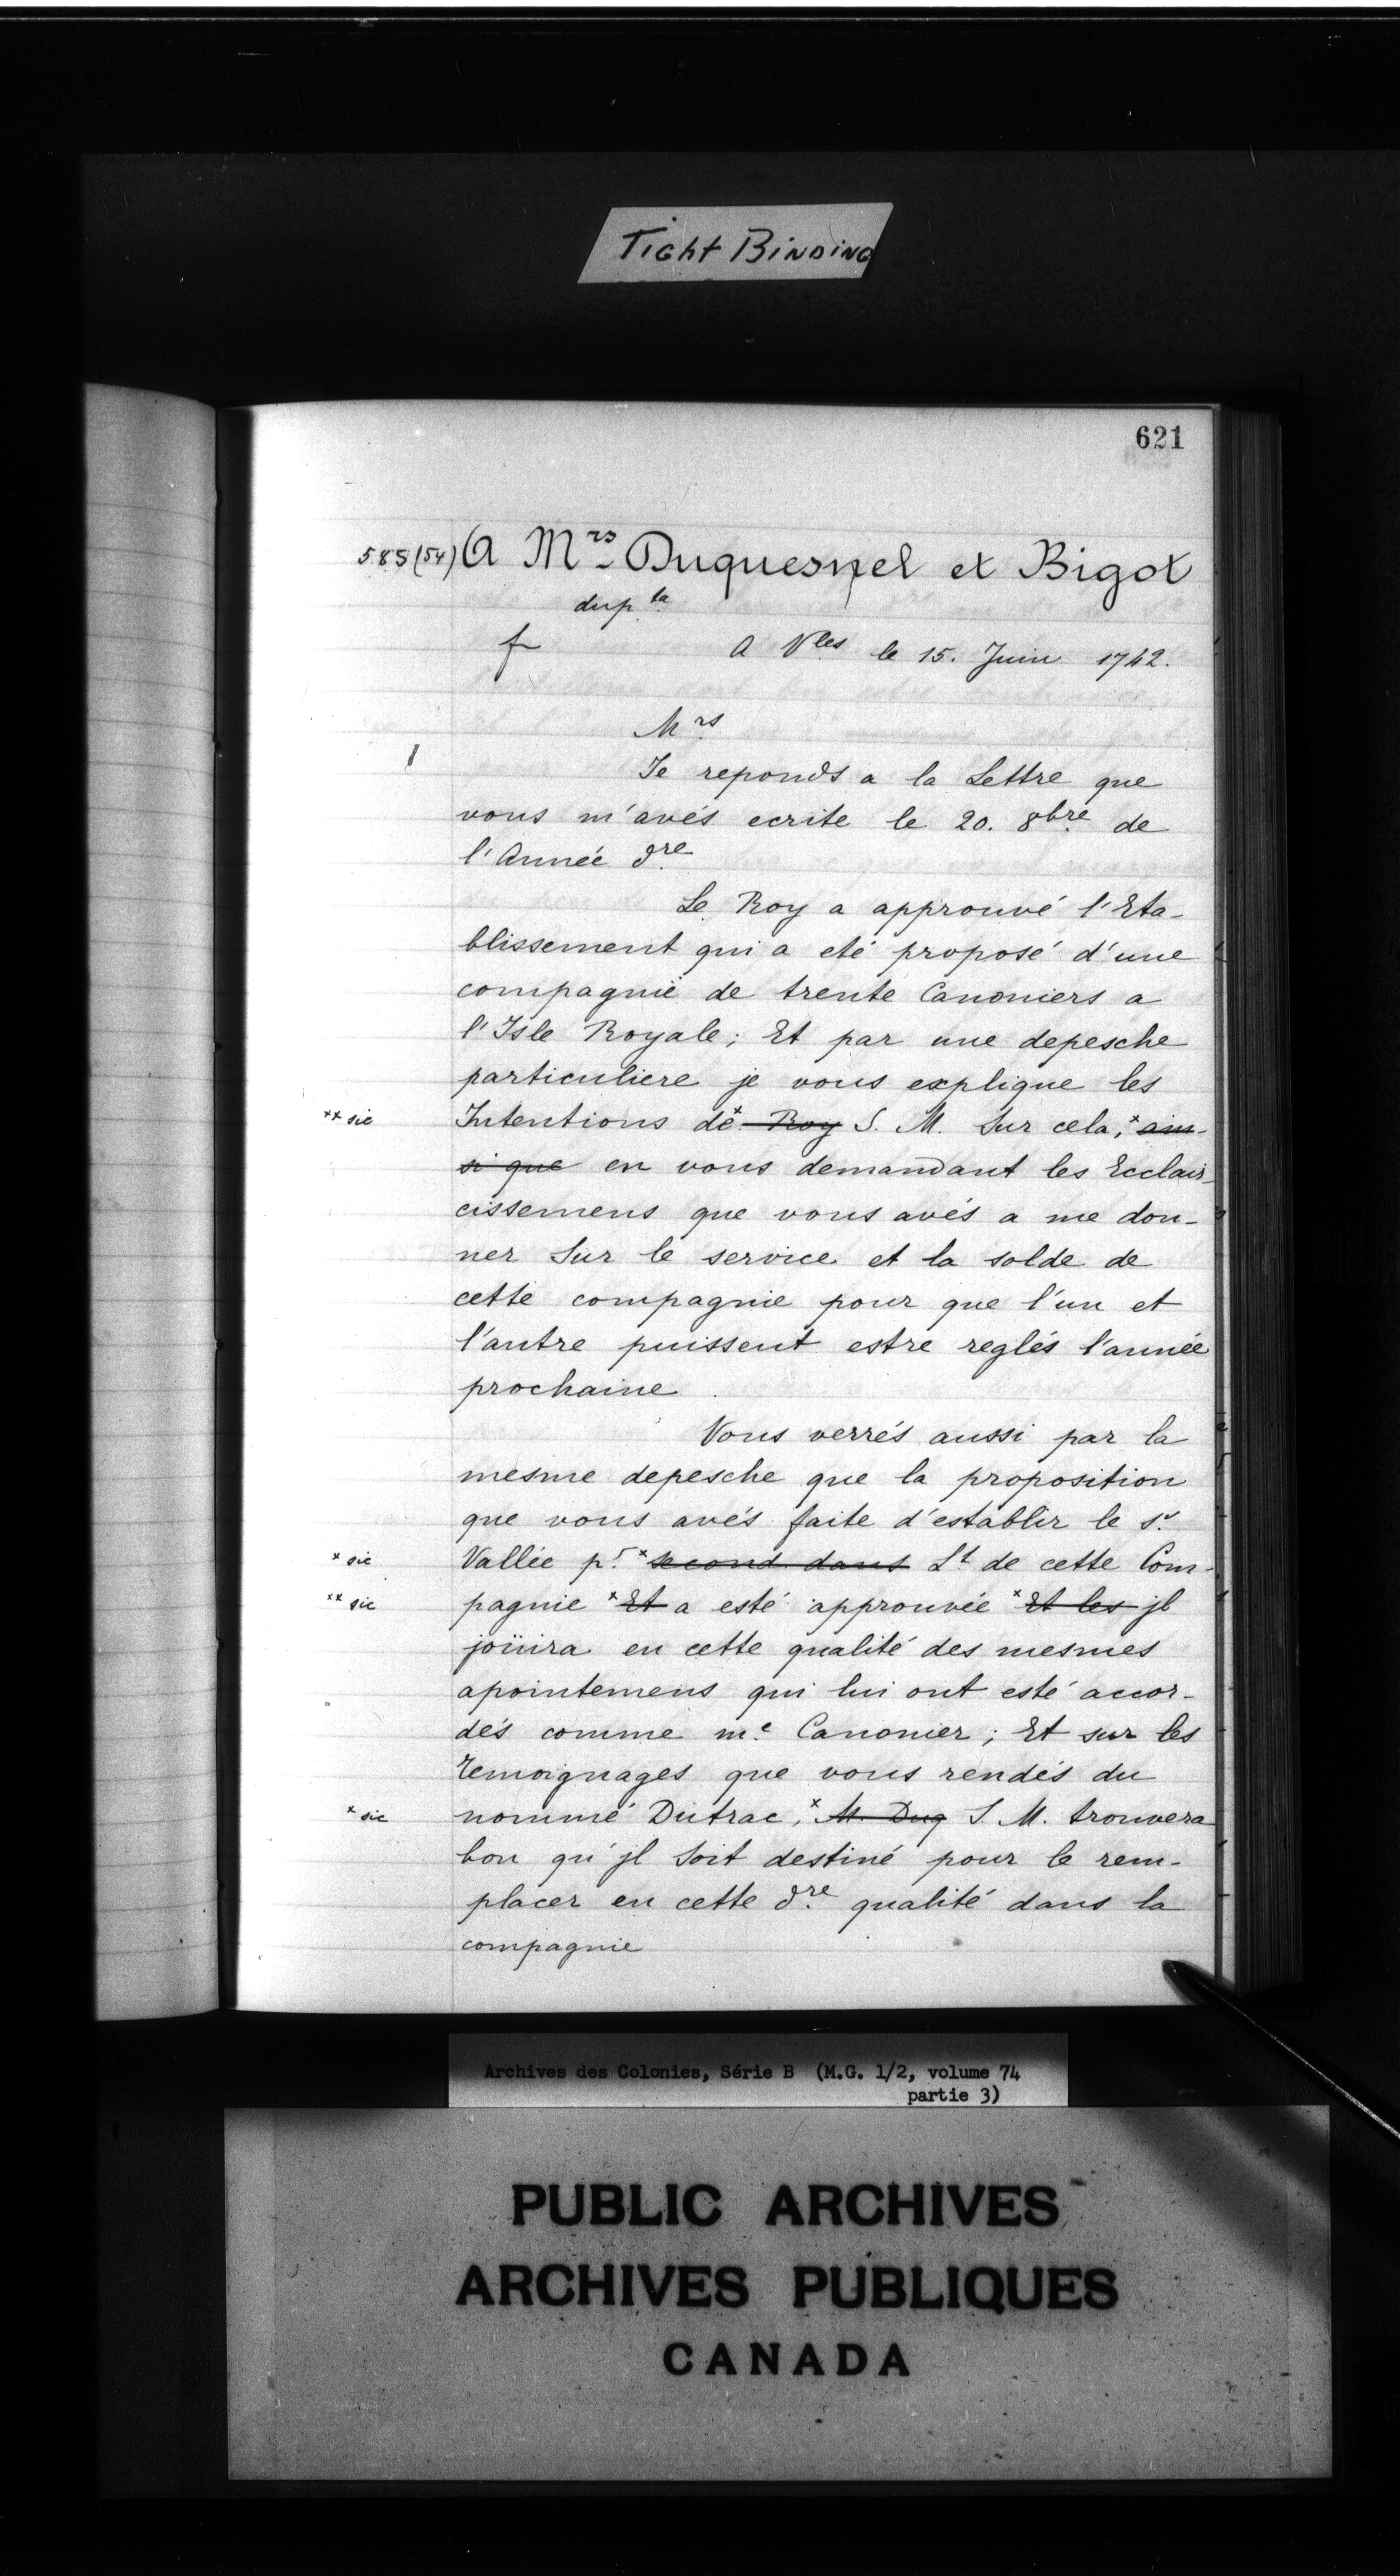 Tight Binding
621
585 (54) A Mrs Duquesnel et Bigot
dupta
A Vles le 15. Juin 1742.
Mrs
1
Je reponds a la Lettre que
vous m'avés ecrite le 20. 8bre de
l'Année dre
Le Roy a approuvé l'Eta-
blissement qui a eté proposé d'une
compagnie de trente Canoniers a
l'Isle Royale; Et par une depesche
particuliere je vous explique les
** sic Intentions de * Roy S. M. Sur cela, * ain-
si que en vous demandant les Ecclair-
cissemens que vous avés a me don-
ner Sur le service et la solde de
cette compagnie pour que l'un et
l'autre puissent estre reglés l'année
prochaine.
Vous verrés aussi par la
mesme depesche que la proposition
que vous avés faite d'establir le sr
* sic Vallée pr. * second dans Lt de cette Com-
** sic pagnie * Et a esté approuvée * Et les jl
joüira en cette qualité des mesmes
apointemens qui lui ont esté accor-
dés comme me Canonier; Et sur les
temoignages que vous rendés du
* sic nommé Dutrac, * M. Duq S. M. trouvera
bon qu'jl Soit destiné pour le rem-
placer en cette dre qualité dans la
compagnie
Archives des Colonies, Série B (M.G. 1/2, volume 74
partie 3)
PUBLIC ARCHIVES
ARCHIVES PUBLIQUES
CANADA